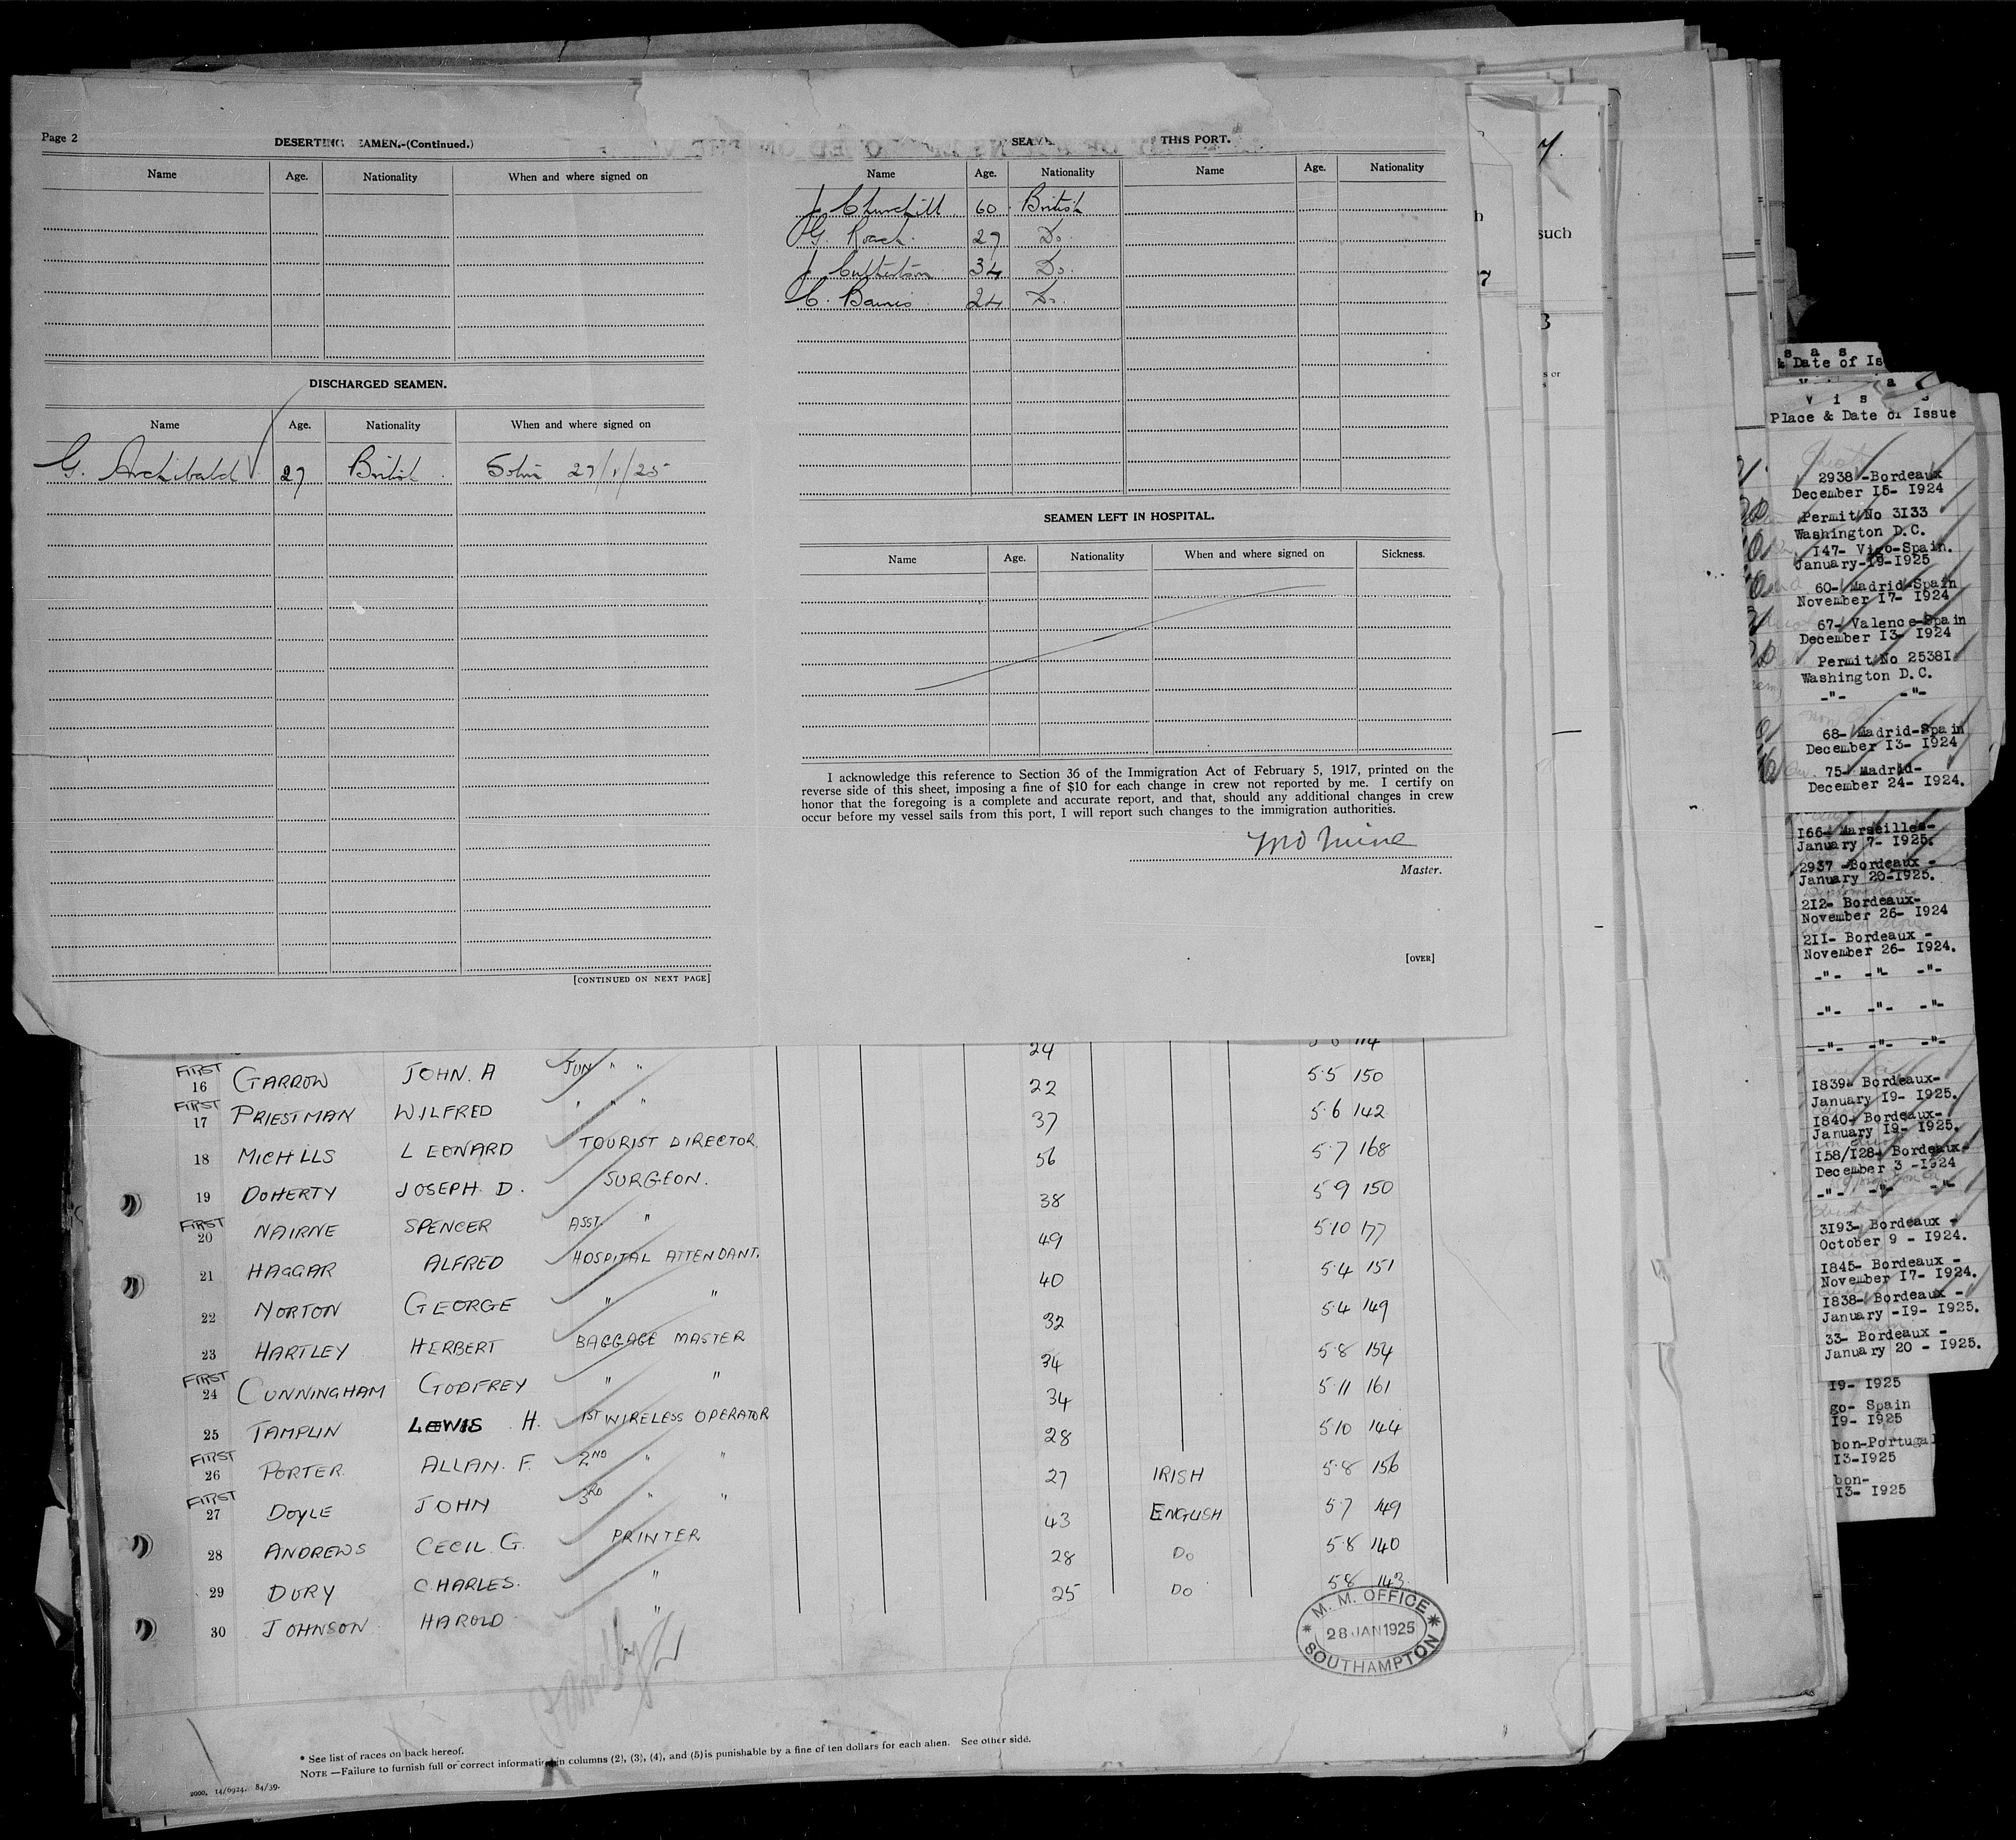 Page 2
DESERTING SEAMEN.-(Continued.)
Name Age. Nationality When and where signed on
DISCHARGED SEAMEN.
Name Age. Nationality When and where signed on
G. Archibald 27 British Soton 27/1/25
[CONTINUED ON NEXT PAGE]
SEAM THIS PORT.
Name Age. Nationality Name Age. Nationality
J Churchill 60 British
G. Roach 27 Do.
J Cutterton 34 Do.
C. Baines 24 Do.
SEAMEN LEFT IN HOSPITAL.
Name Age. Nationality When and where signed on Sickness.
I acknowledge this reference to Section 36 of the Immigration Act of February 5, 1917, printed on the
reverse side of this sheet, imposing a fine of $10 for each change in crew not reported by me. I certify on
honor that the foregoing is a complete and accurate report, and that, should any additional changes in crew
occur before my vessel sails from this port, I will report such changes to the immigration authorities.
Master.
[OVER]
24 114
FIRST 16 GARROW JOHN. A JUN " " 22 5·5 150
FIRST 17 PRIESTMAN WILFRED " " " 37 5·6 142
18 MICHLLS LEONARD TOURIST DIRECTOR 56 5·7 168
19 DOHERTY JOSEPH. D. SURGEON. 38 5·9 150
FIRST 20 NAIRNE SPENCER ASST. " 49 5·10 177
21 HAGGAR ALFRED HOSPITAL ATTENDANT. 40 5·4 151
22 NORTON GEORGE " " 32 5·4 149
23 HARTLEY HERBERT BAGGAGE MASTER 34 5·8 154
FIRST 24 CUNNINGHAM GODFREY " " 34 5·11 161
25 TAMPLIN LEWIS H. 1ST WIRELESS OPERATOR 28 5·10 144
FIRST 26 PORTER ALLAN. F. 2ND " " 27 IRISH 5·8 156
FIRST 27 DOYLE JOHN 3RD " " 43 ENGLISH 5·7 149
28 ANDREWS CECIL G. PRINTER 28 Do 5·8 140
29 DURY CHARLES. " 25 Do 5·8 143
30 JOHNSON HAROLD "
M. M. OFFICE
28 JAN 1925
SOUTHAMPTON
* See list of races on back hereof.
NOTE —Failure to furnish full or correct information in columns (2), (3), (4), and (5) is punishable by a fine of ten dollars for each alien. See other side.
2000, 14/6924. 84/39.
7.
such
7
3
s or
s a s
& Date of Is
V i s s
Place & Date of Issue
2938 -Bordeaux
December 15- 1924
Permit No 3133
Washington D.C.
147- Vigo-Spain.
January-19-1925
60- Madrid-Spain
November 17- 1924
67- Valence-Spain
December 13- 1924
Permit No 25381
Washington D.C.
-"- -"-
68- Madrid-Spain
December 13- 1924
75- Madrid-
December 24- 1924.
166- Marseilles-
January 7- 1925.
2937 -Bordeaux -
January 20-1925.
212- Bordeaux-
November 26- 1924
211- Bordeaux -
November 26- 1924.
-"- -"- -"-
-"- -"- -"-
-"- -"- -"-
1839- Bordeaux-
January 19- 1925.
1840- Bordeaux-
January 19- 1925.
158/128- Bordeaux-
December 3 -1924
-"- -"- -"-
3193- Bordeaux -
October 9 - 1924.
1845- Bordeaux -
November 17- 1924.
1838- Bordeaux -
January -19- 1925.
33- Bordeaux -
January 20 - 1925.
19- 1925
go- Spain
19- 1925
bon-Portugal
13-1925
bon-
13- 1925